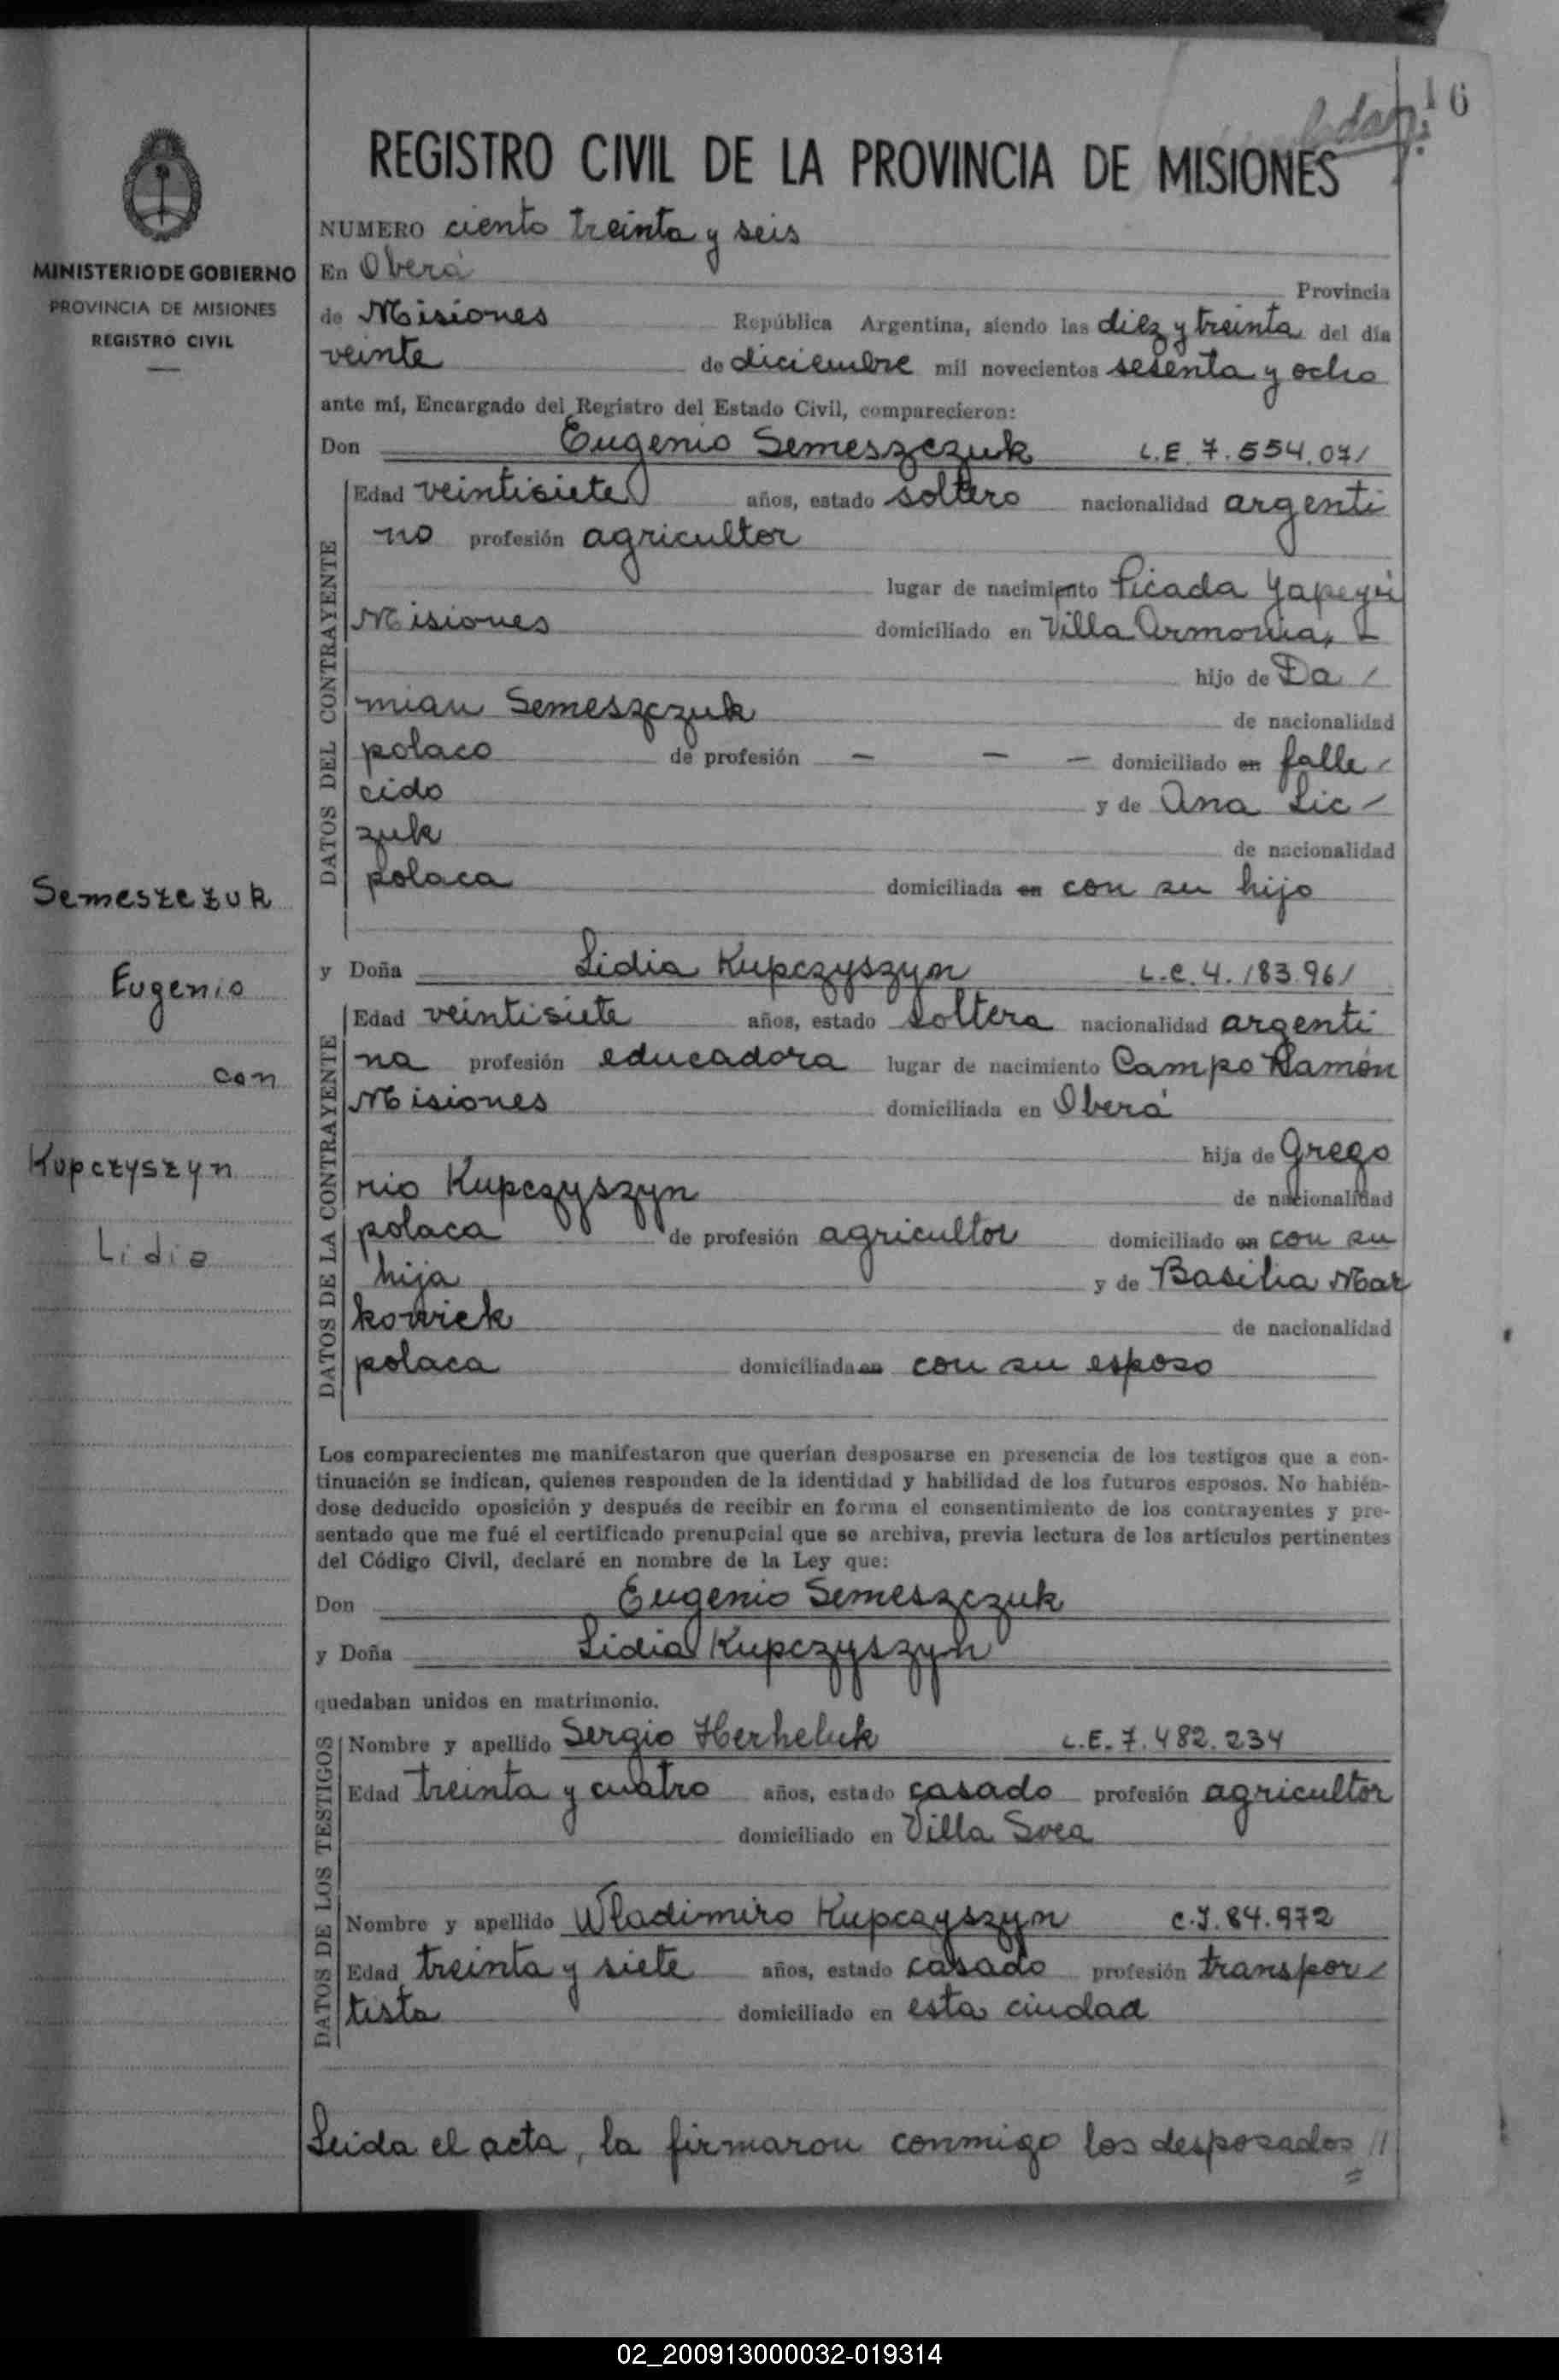 16
REGISTRO CIVIL DE LA PROVINCIA DE MISIONES
MINISTERIO DE GOBIERNO
PROVINCIA DE MISIONES
REGISTRO CIVIL
NUMERO ciento treinta y seis
En Oberá
Provincia
de Misiones República Argentina, siendo las diez y treinta del día
veinte de diciembre mil novecientos sesenta y ocho
ante mí, Encargado del Registro del Estado Civil, comparecieron:
Don Eugenio Semeszczuk L.E. 7.554.071
DATOS DEL CONTRAYENTE
Edad veintisiete años, estado soltero nacionalidad argenti
no profesión agricultor
lugar de nacimiento Picada Yapeyú
Misiones domiciliado en Villa Armonia,
hijo de Da /
mian Semeszczuk de nacionalidad
polaco de profesión — — — domiciliado en falle /
cido y de Ana Lic /
zuk de nacionalidad
polaca domiciliada en con su hijo
Semeszczuk
Eugenio
con
Kupczyszyn
Lidia
y Doña Lidia Kupczyszyn L.C. 4.183.961
DATOS DE LA CONTRAYENTE
Edad veintisiete años, estado soltera nacionalidad argenti
na profesión educadora lugar de nacimiento Campo Ramón
Misiones domiciliada en Oberá
hija de Grego
rio Kupczyszyn de nacionalidad
polaca de profesión agricultor domiciliado en con su
hija y de Basilia Mar
kowiek de nacionalidad
polaca domiciliada en con su esposo
Los comparecientes me manifestaron que querían desposarse en presencia de los testigos que a con-
tinuación se indican, quienes responden de la identidad y habilidad de los futuros esposos. No habién-
dose deducido oposición y después de recibir en forma el consentimiento de los contrayentes y pre-
sentado que me fué el certificado prenupcial que se archiva, previa lectura de los artículos pertinentes
del Código Civil, declaré en nombre de la Ley que:
Don Eugenio Semeszczuk
y Doña Lidia Kupczyszyn
quedaban unidos en matrimonio.
DATOS DE LOS TESTIGOS
Nombre y apellido Sergio Herheluk L.E. 7.482.234
Edad treinta y cuatro años, estado casado profesión agricultor
domiciliado en Villa Svea
Nombre y apellido Wladimiro Kupczyszyn C.I. 84.972
Edad treinta y siete años, estado casado profesión transpor /
tista domiciliado en esta ciudad
Leida el acta, la firmaron conmigo los desposados //
02_200913000032-019314